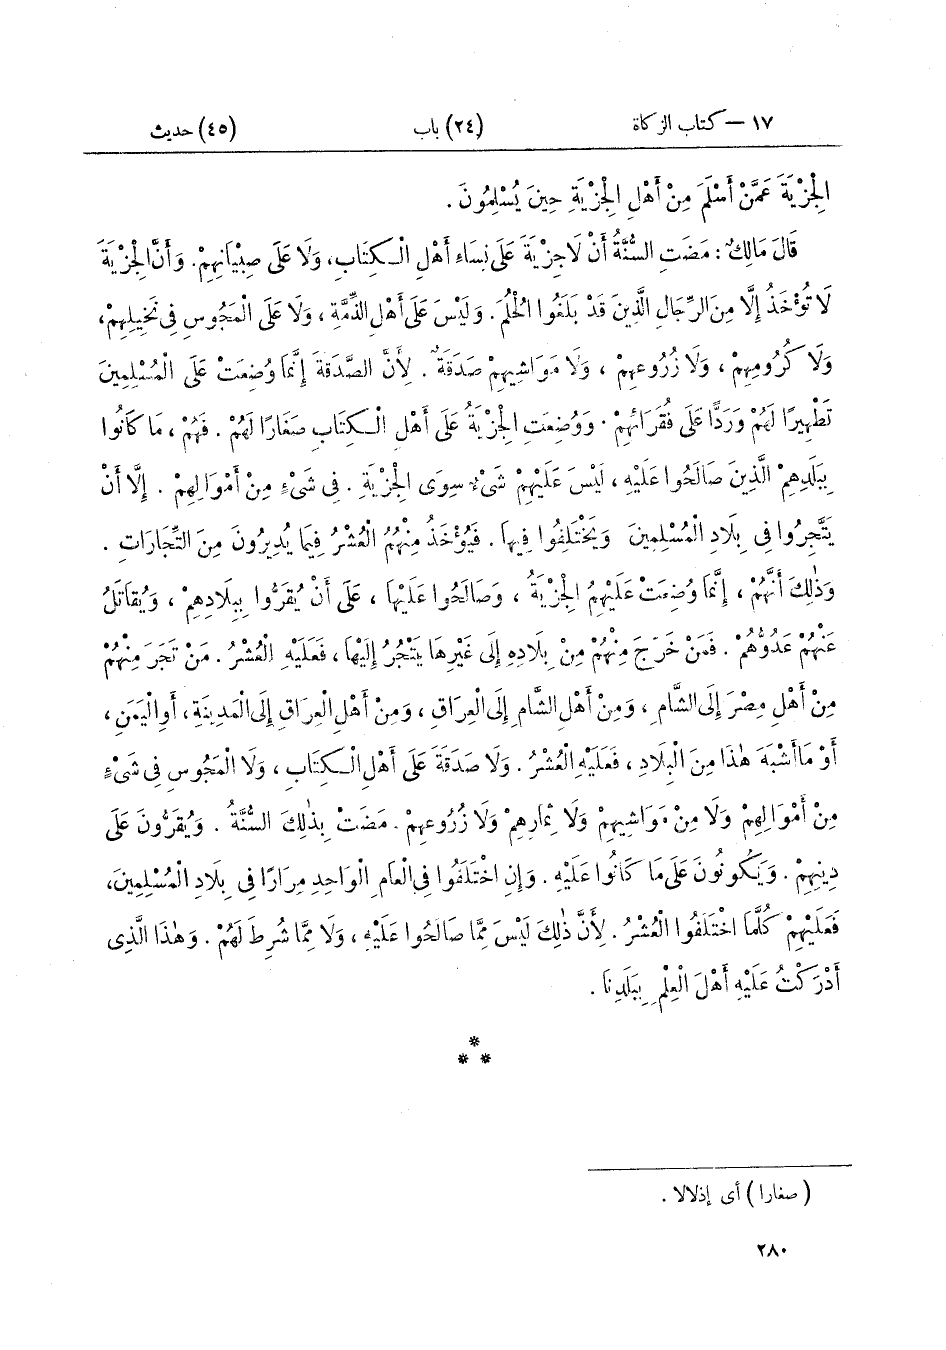 ١٧ — كتاب الزكاة (٢٤) باب (٤٥) حديث
الْجِزْيَةَ عَمَّنْ أَسْلَمَ مِنْ أَهْلِ الْجِزْيَةِ حِينَ يُسْلِمُونَ .
قَالَ مَالِكٌ : مَضَتِ السُّنَّةُ أَنْ لَا جِزْيَةَ عَلَى نِسَاءِ أَهْلِ الْكِتَابِ، وَلَا عَلَى صِبْيَانِهِمْ. وَأَنَّ الْجِزْيَةَ
لَا تُؤْخَذُ إِلَّا مِنَ الرِّجَالِ الَّذِينَ قَدْ بَلَغُوا الْحُلُمَ. وَلَيْسَ عَلَى أَهْلِ الذِّمَّةِ ، وَلَا عَلَى الْمَجُوسِ فِي نَخِيلِهِمْ،
وَلَا كُرُومِهِمْ ، وَلَا زُرُوعِهِمْ ، وَلَا مَوَاشِيهِمْ صَدَقَةٌ . لِأَنَّ الصَّدَقَةَ إِنَّمَا وُضِعَتْ عَلَى الْمُسْلِمِينَ
تَطْهِيرًا لَهُمْ وَرَدًّا عَلَى فُقَرَائِهِمْ . وَوُضِعَتِ الْجِزْيَةُ عَلَى أَهْلِ الْكِتَابِ صَغَارًا لَهُمْ . فَهُمْ ، مَا كَانُوا
بِبَلَدِهِمْ الَّذِينَ صَالَحُوا عَلَيْهِ ، لَيْسَ عَلَيْهِمْ شَيْءٌ سِوَى الْجِزْيَةِ . فِي شَيْءٍ مِنْ أَمْوَالِهِمْ . إِلَّا أَنْ
يَتَّجِرُوا فِي بِلَادِ الْمُسْلِمِينَ وَيَخْتَلِفُوا فِيهَا . فَيُؤْخَذُ مِنْهُمُ الْعُشْرُ فِيمَا يُدِيرُونَ مِنَ التِّجَارَاتِ .
وَذٰلِكَ أَنَّهُمْ ، إِنَّمَا وُضِعَتْ عَلَيْهِمُ الْجِزْيَةُ ، وَصَالَحُوا عَلَيْهَا ، عَلَى أَنْ يُقَرُّوا بِبِلَادِهِمْ ، وَيُقَاتَلُ
عَنْهُمْ عَدُوُّهُمْ . فَمَنْ خَرَجَ مِنْهُمْ مِنْ بِلَادِهِ إِلَى غَيْرِهَا يَتْجُرُ إِلَيْهَا ، فَعَلَيْهِ الْعُشْرُ . مَنْ تَجَرَ مِنْهُمْ
مِنْ أَهْلِ مِصْرَ إِلَى الشَّامِ ، وَمِنْ أَهْلِ الشَّامِ إِلَى الْعِرَاقِ ، وَمِنْ أَهْلِ الْعِرَاقِ إِلَى الْمَدِينَةِ، أَوِ الْيَمَنِ ،
أَوْ مَا أَشْبَهَ هٰذَا مِنَ الْبِلَادِ ، فَعَلَيْهِ الْعُشْرُ . وَلَا صَدَقَةَ عَلَى أَهْلِ الْكِتَابِ ، وَلَا الْمَجُوسِ فِي شَيْءٍ
مِنْ أَمْوَالِهِمْ وَلَا مِنْ مَوَاشِيهِمْ وَلَا ثِمَارِهِمْ وَلَا زُرُوعِهِمْ . مَضَتْ بِذٰلِكَ السُّنَّةُ . وَيُقَرُّونَ عَلَى
دِينِهِمْ . وَيَكُونُونَ عَلَى مَا كَانُوا عَلَيْهِ . وَإِنِ اخْتَلَفُوا فِي الْعَامِ الْوَاحِدِ مِرَارًا فِي بِلَادِ الْمُسْلِمِينَ،
فَعَلَيْهِمْ كُلَّمَا اخْتَلَفُوا الْعُشْرُ . لِأَنَّ ذٰلِكَ لَيْسَ مِمَّا صَالَحُوا عَلَيْهِ ، وَلَا مِمَّا شُرِطَ لَهُمْ . وَهٰذَا الَّذِى
أَدْرَكْتُ عَلَيْهِ أَهْلَ الْعِلْمِ بِبَلَدِنَا .
*
* *
( صغارا ) أى إذلالا .
٢٨٠